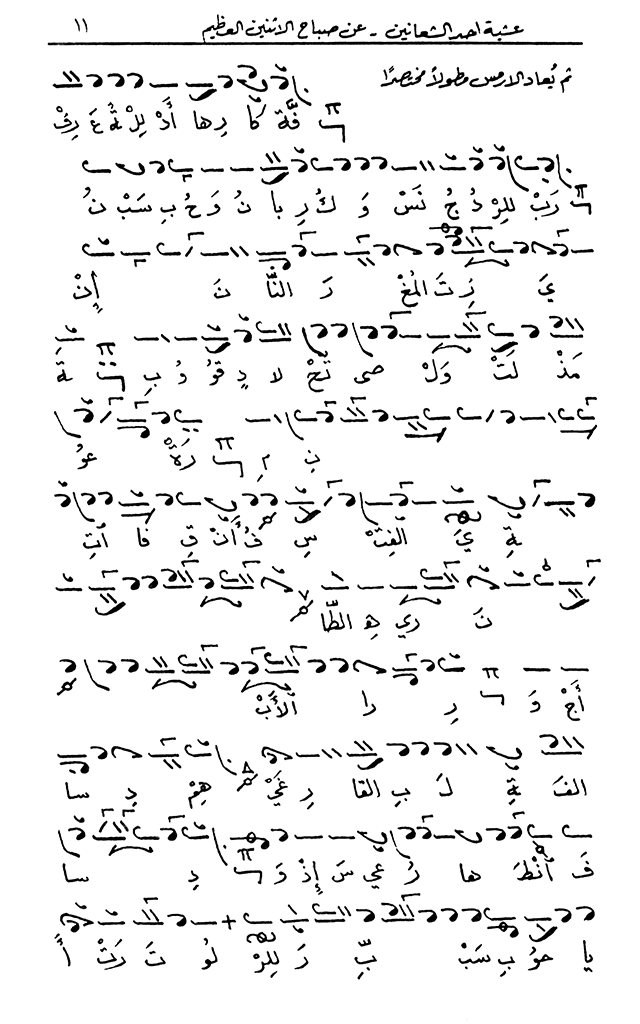 عشية احد الشعانين - عن صباح الاثنين العظيم ١١
ثم يُعاد الارمس مطولاً مختصرًا
فَّةَ كَا رِها أَدْ لِلْ ةُ عَ رِفْ
رَبْ لِلرْ دُ جُ نَسْ وَ كُ رِ با نُ وَ حُ بِ سَبْ نُ
يَ زِ تَ المُغْ رَ النَّا نَ إِنْ
مَذْ لَتْ وَلْ صى تُحْ لا دٍ قُوْ دُ بِ ةَ
نِ مِ رَةْ عوُ
ةِ يَ الفِتْ سِ فُ أَنْ قِ فا آتِ
نَ رِي هِ الطَّا
أَجْ وَ رِ را الأَبْ
الفَ ةِ لَ بِ القا رِ غَيْ هِمْ دِ سا
فَ انْطَ ها رُ عي سَ إِذْ وَ دِ سا
يا حُوْ بِ سَبْ بِّ رَ لِلرْ لُو تَ رَتْ أَ